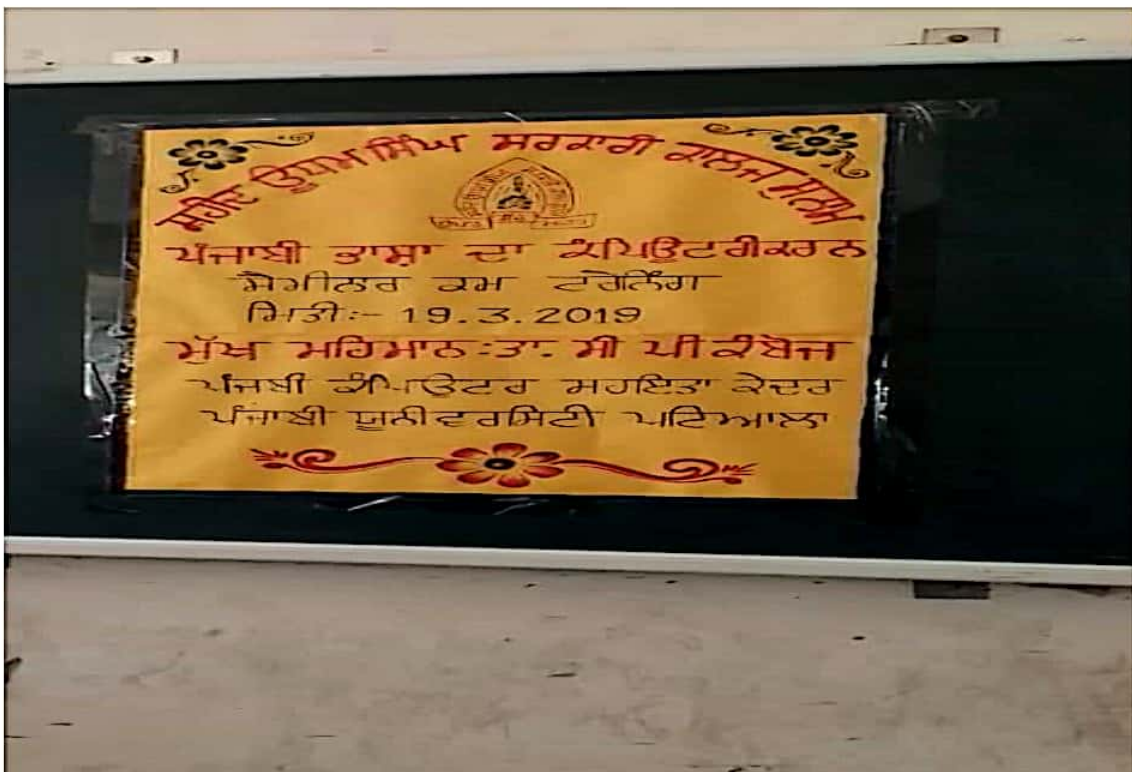 ਸ਼ਹੀਦ ਊਧਮ ਸਿੰਘ ਸਰਕਾਰੀ ਕਾਲਜ ਸੁਨਾਮ
ਪੰਜਾਬੀ ਭਾਸ਼ਾ ਦਾ ਕੰਪਿਊਟਰੀਕਰਨ
ਸੈਮੀਨਾਰ ਕਮ ਟਰੇਨਿੰਗ
ਮਿਤੀ:- 19.3.2019
ਮੁੱਖ ਮਹਿਮਾਨ:ਡਾ. ਸੀ ਪੀ ਕੰਬੋਜ
ਪੰਜਾਬੀ ਕੰਪਿਊਟਰ ਸਹਾਇਤਾ ਕੇਂਦਰ
ਪੰਜਾਬੀ ਯੂਨੀਵਰਸਿਟੀ ਪਟਿਆਲਾ